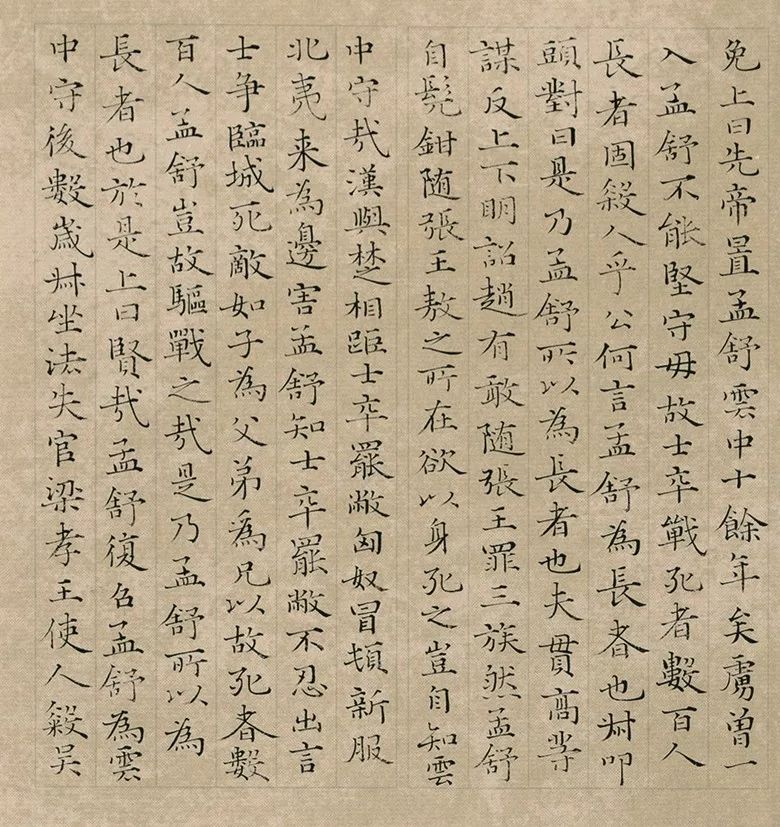 免上曰先帝置孟舒雲中十餘年矣虜曾一
入孟舒不能堅守毋故士卒戰死者數百人
長者固殺人乎公何言孟舒為長者也叔叩
頭對曰是乃孟舒所以為長者也夫貫高等
謀反上下明詔趙有敢随張王罪三族然孟舒
自髡鉗随張王敖之所在欲以身死之豈自知雲
中守哉漢與楚相距士卒罷敝匈奴冒頓新服
北夷来為邊害孟舒知士卒罷敝不忍出言
士争臨城死敵如子為父弟為兄以故死者數
百人孟舒豈故驅戰之哉是乃孟舒所以為
長者也於是上曰賢哉孟舒復召孟舒為雲
中守後數歲叔坐法失官梁孝王使人殺吴